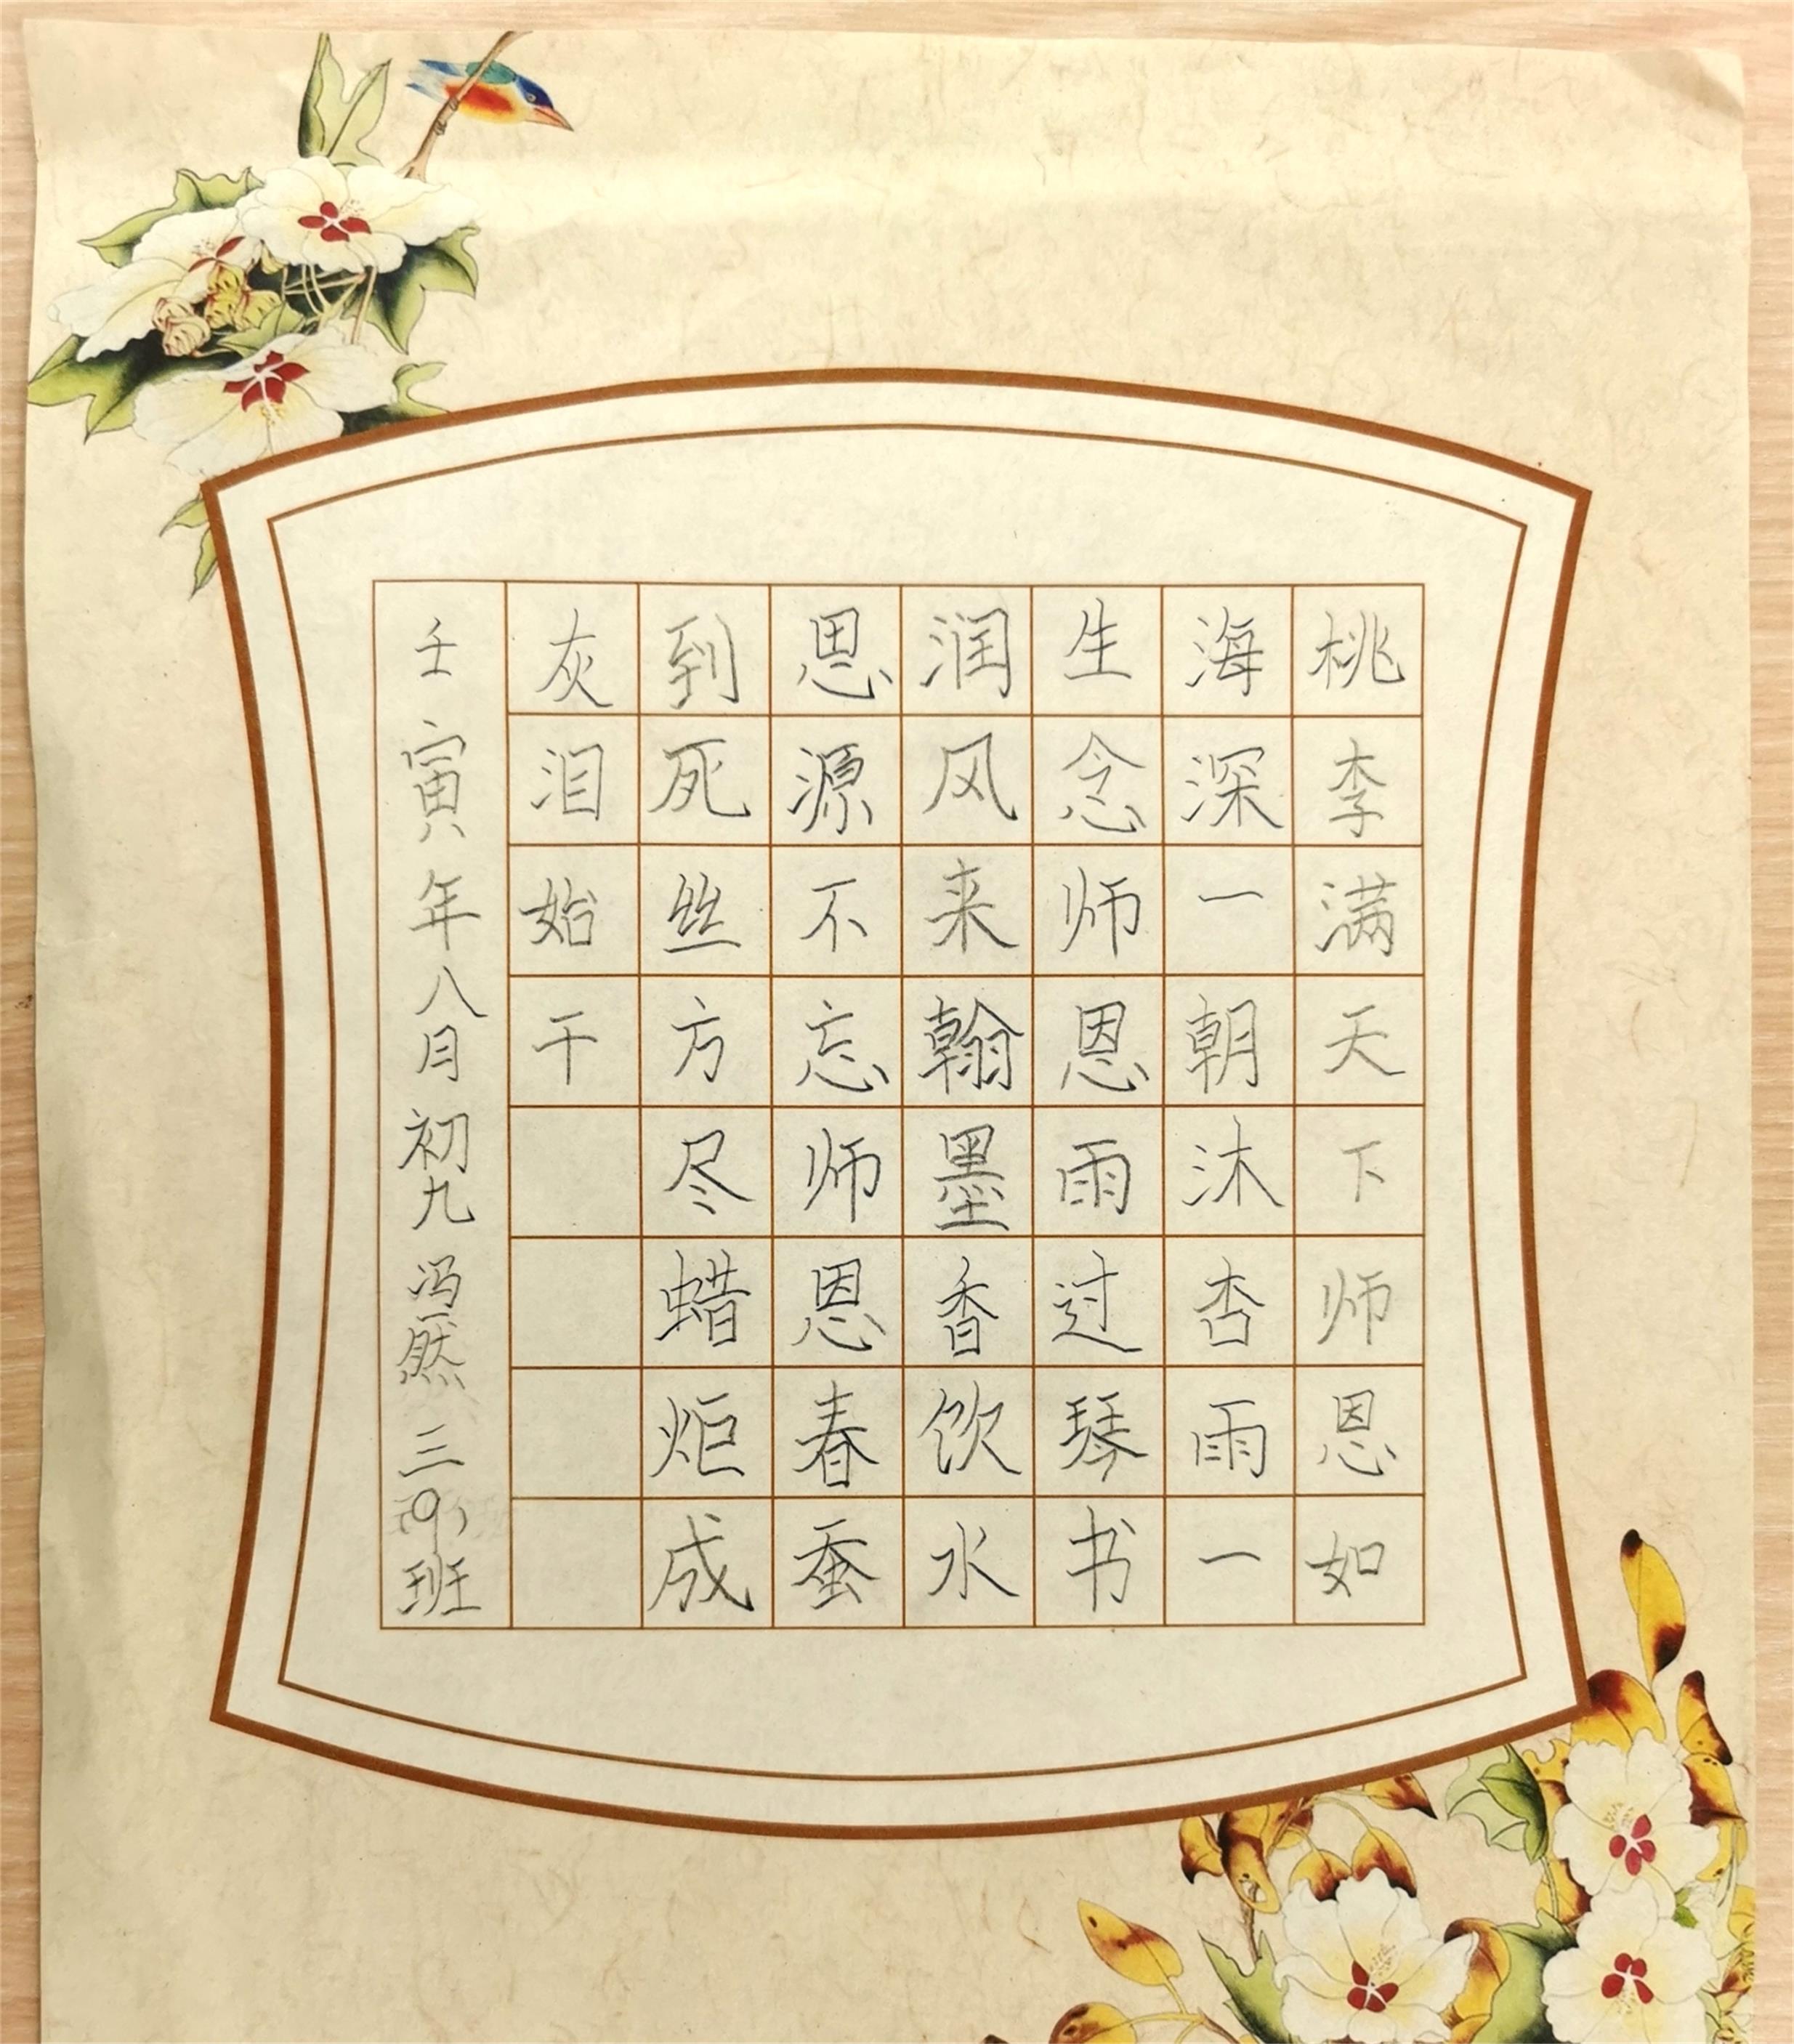 桃李满天下师恩如
海深一朝沐杏雨一
生念师恩雨过琴书
润风来翰墨香饮水
思源不忘师恩春蚕
到死丝方尽蜡炬成
灰泪始干
壬寅年八月初九 冯一然 三(9)班